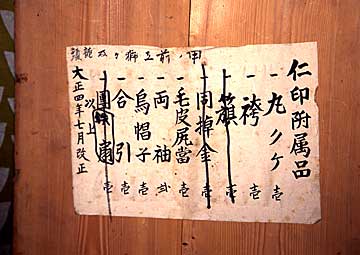 仁印附属品
一 丸クケ 壱
一 袴 壱
一 旗 壱
一 同棹金 壱
一 毛皮尻當 壱
一 両袖 弐
一 烏帽子 壱
一 合引 壱
一 團扇 壱
以上
大正四年七月改正